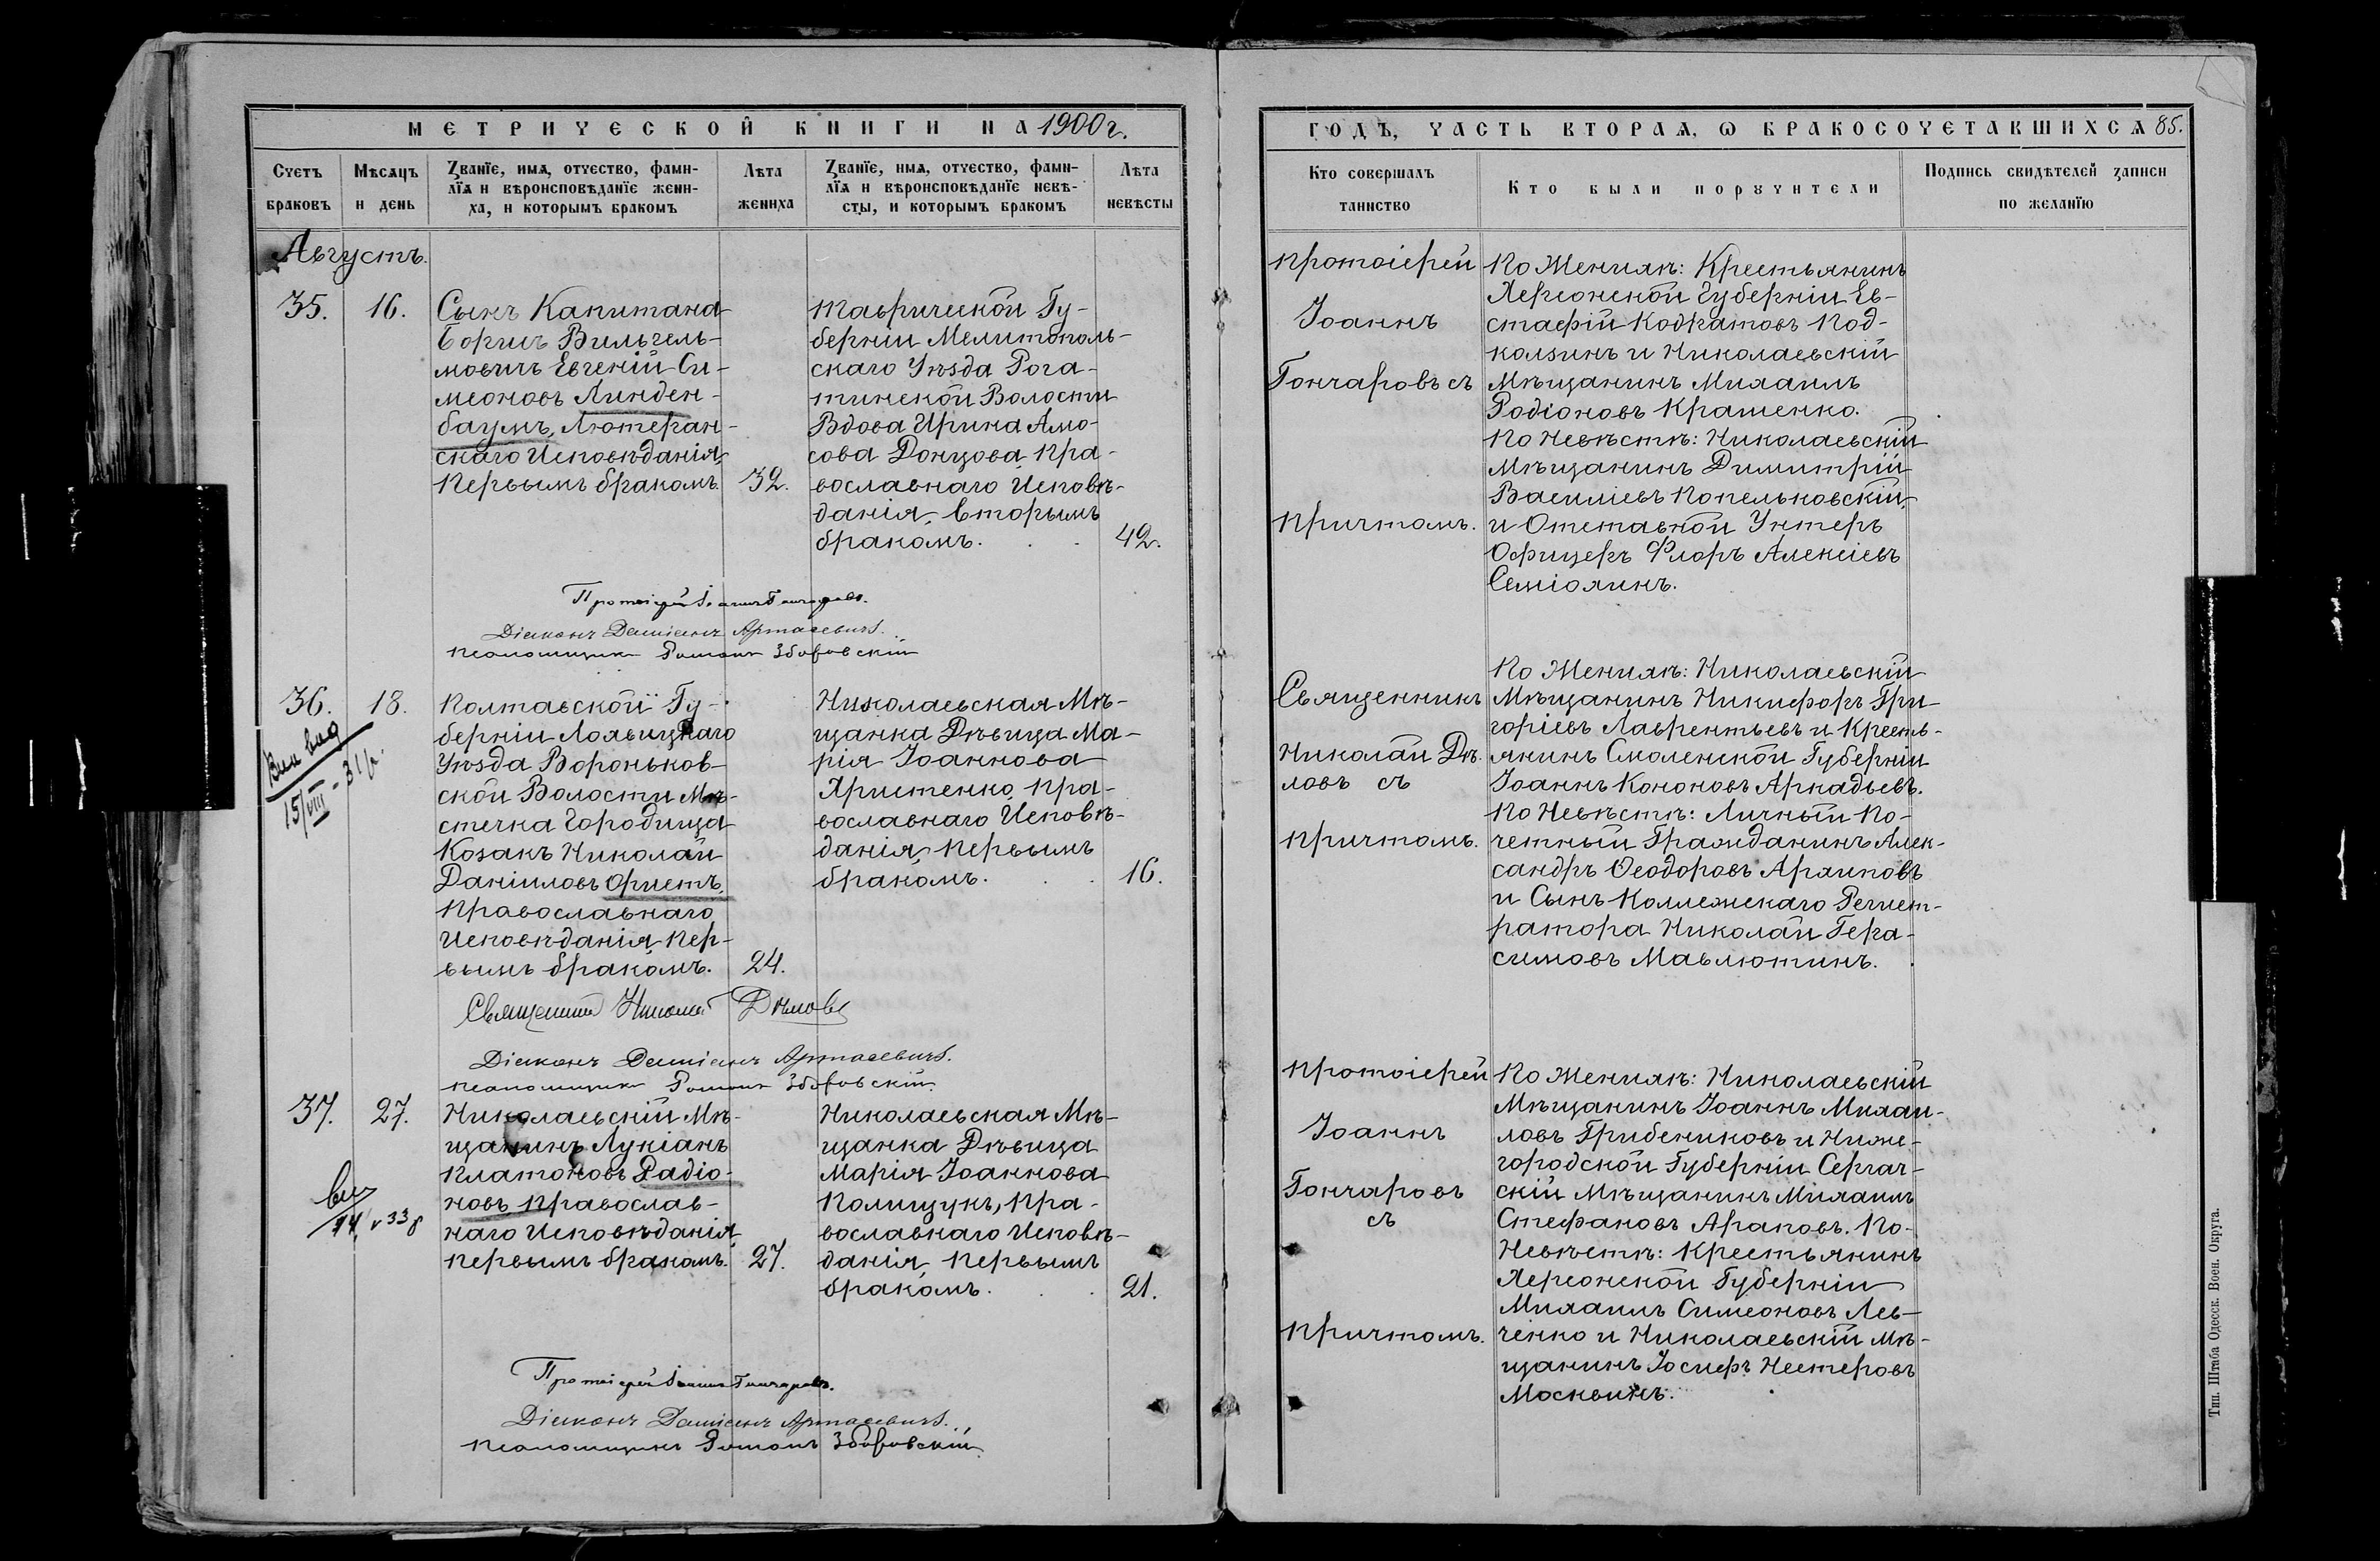 МЕТРИЧЕСКОЙ КНИГИ НА 1900 г.
Счетъ браковъ
Мѣсяцъ и день
Званїе, имя, отчество, фами-
лїя и вѣроисповѣданїе жени-
ха, и которымъ бракомъ
Лѣта жениха
Званїе, имя, отчество, фами-
лїя и вѣроисповѣданїе невѣ-
сты, и которымъ бракомъ
Лѣта невѣсты
Августъ.
35.
16.
Сынъ Капитана
Борисъ Вильгель-
мовичъ Евгеній Си-
меоновъ Линден-
баумъ, Лютеран-
скаго Исповѣданія,
Первымъ бракомъ.
32.
Таврической Гу-
берніи Мелитополь-
скаго Уѣзда Рога-
тинской Волости
Вдова Ирина Амо-
сова Донцова, Пра-
вославнаго Исповѣ-
данія, вторымъ
бракомъ.
42.
Протоіерей Іоаннъ Гончаровъ.
Діаконъ Даміанъ Артасевичъ.
Псаломщикъ Романъ Зборовскій
36.
18.
Вип вид
15/VIII - 31 р.
Полтавской Гу-
берніи Лохвицкаго
Уѣзда Вороньков-
ской Волости Мѣ-
стечка Городища
Козакъ Николай
Даніиловъ Ористъ,
Православнаго
Исповѣданія, Пер-
вымъ бракомъ.
24.
Николаевская Мѣ-
щанка Дѣвица Ма-
рія Іоаннова
Христенко, Пра-
вославнаго Исповѣ-
данія, Первымъ
бракомъ.
16.
Священникъ Николай Дѣловъ
Діаконъ Даміанъ Артасевичъ.
Псаломщикъ Романъ Зборовскій.
37.
27.
Николаевскій Мѣ-
щанинъ Лукіанъ
Платоновъ Радіо-
новъ, Православ-
наго Исповѣданія,
Первымъ бракомъ.
27.
Николаевская Мѣ-
щанка Дѣвица
Марія Іоаннова
Полищукъ, Пра-
вославнаго Исповѣ-
данія, Первымъ
бракомъ.
21.
Протоіерей Іоаннъ Гончаровъ.
Діаконъ Даміанъ Артасевичъ.
Псаломщикъ Романъ Зборовскій.
ГОДЪ, ЧАСТЬ ВТОРАЯ, Ѡ БРАКОСОЧЕТАВШИХСЯ 85.
Кто совершалъ
таинство
Кто были поручители
Подпись свидѣтелей записи
по желанїю
Протоіерей
Іоаннъ
Гончаровъ съ
Причтомъ.
По Женихѣ: Крестьянинъ
Херсонской Губерніи Ев-
стафій Кодратовъ Под-
колзинъ и Николаевскій
Мѣщанинъ Михаилъ
Родіоновъ Крашенко.
По Невѣстѣ: Николаевскій
Мѣщанинъ Димитрій
Василіевъ Попельковскій,
и Отставной Унтеръ
Офицеръ Флоръ Алексіевъ
Семіохинъ.
Священникъ
Николай Дѣ-
ловъ съ
Причтомъ.
По Женихѣ: Николаевскій
Мѣщанинъ Никифоръ Гри-
горіевъ Лаврентьевъ и Кресть-
янинъ Смоленской Губерніи
Іоаннъ Кононовъ Аркадьевъ.
По Невѣстѣ: Личный По-
четный Гражданинъ Алек-
сандръ Ѳеодоровъ Архиповъ
и Сынъ Коллежскаго Регист-
ратора Николай Гера-
симовъ Мавлютинъ.
Протоіерей
Іоаннъ
Гончаровъ
съ
Причтомъ.
По Женихѣ: Николаевскій
Мѣщанинъ Іоаннъ Михаи-
ловъ Грибениковъ и Ниже-
городской Губерніи Сергач-
скій Мѣщанинъ Михаилъ
Стефановъ Араповъ. По-
Невѣстѣ: Крестьянинъ
Херсонской Губерніи
Михаилъ Симеоновъ Лев-
ченко и Николаевскій Мѣ-
щанинъ Іосифъ Нестеровъ
Москвинъ.
Тип. Штаба Одесск. Воен. Округа.